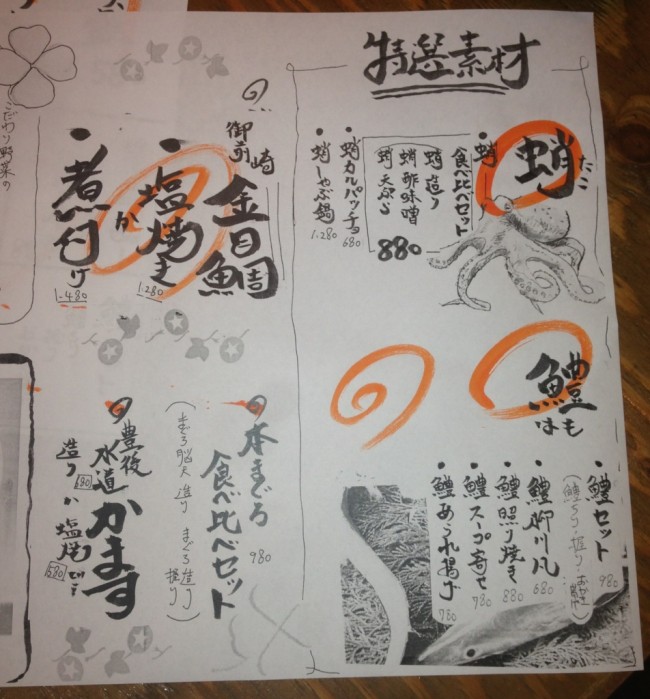 特選素材
蛸
たこ
・蛸食べ比べセット
蛸造り
蛸酢味噌
蛸天ぷら
880
・蛸カルパッチョ
680
・蛸しゃぶ鍋
1.280
鱧
はも
・鱧セット
980
・鱧柳川風
680
・鱧照り焼き
880
・鱧スープ寄せ
780
・鱧あられ揚げ
780
御前崎
金目鯛
・塩焼き
1.280
か
・煮付け
1.480
本まぐろ
食べ比べセット
980
(まぐろ脳天造り まぐろ造り 握り)
豊後水道
かます
造り
880
塩焼
680
こだわり野菜の